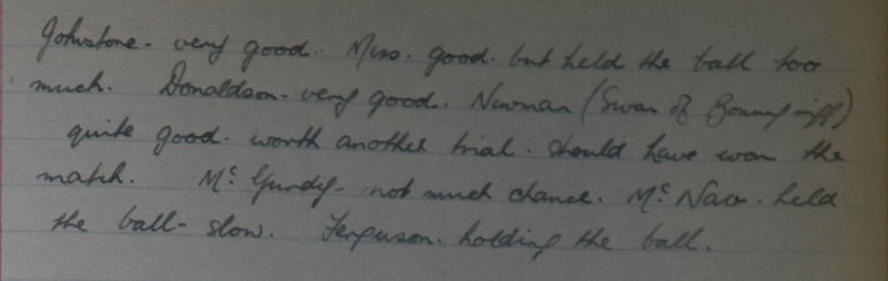 Johnstone - very good. Miss. good. but held the ball too
much. Donaldson - very good. Newman (Swan of Bonnyrigg)
quite good. worth another trial. should have won the
match. Mc Gurdy - not much chance. Mc Naw. held
the ball - slow. Ferguson. holding the ball.